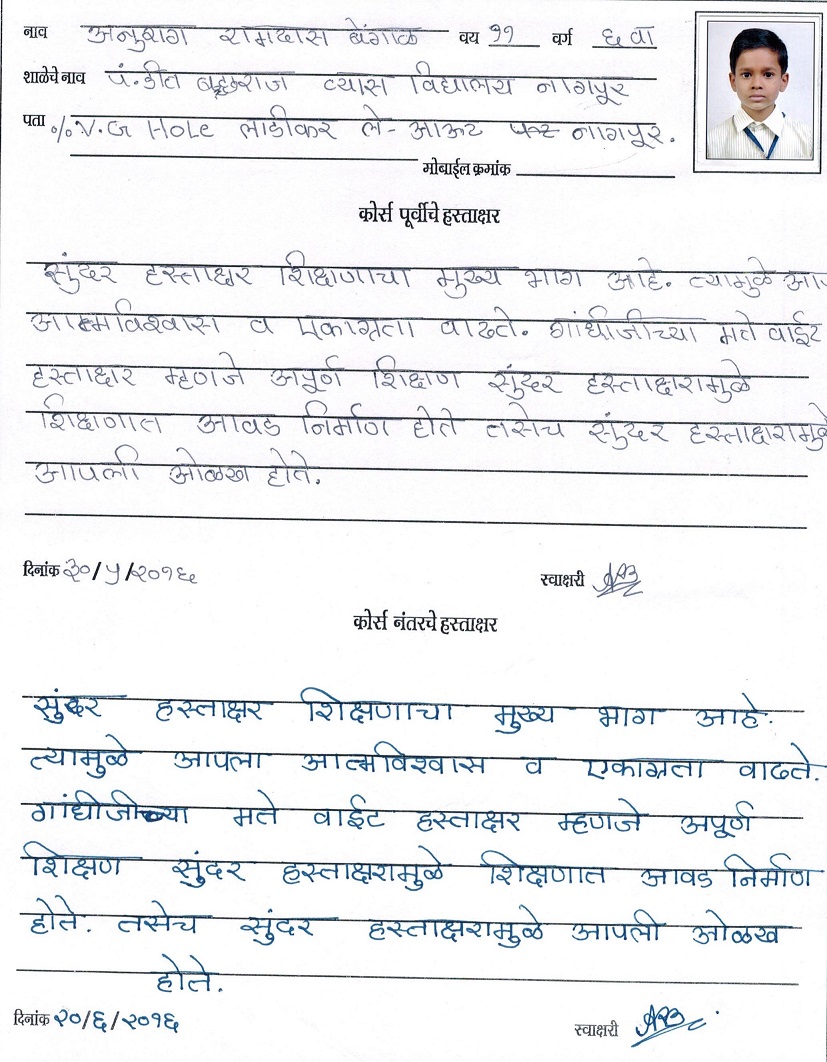 नाव अनुराग रामदास बेंगाळ वय ११ वर्ग ६ वा
शाळेचे नाव पं.डीत बच्छराज व्यास विद्यालय नागपूर
पता % V.G HOLE लाडीकर ले- आऊट नागपूर.
मोबाईल क्रमांक
कोर्स पूर्वीचे हस्ताक्षर
सुंदर हस्ताक्षर शिक्षणाचा मुख्य भाग आहे. त्यामुळे
आत्मविश्वास व एकाग्रता वाढते. गांधीजीच्या मते वाईट
हस्ताक्षर म्हणजे अपूर्ण शिक्षण सुंदर हस्ताक्षरामुळे
शिक्षणात आवड निर्माण होते तसेच सुंदर हस्ताक्षरामुळे
आपली ओळख होते.
दिनांक २०/५/२०१६ स्वाक्षरी
कोर्स नंतरचे हस्ताक्षर
सुंदर हस्ताक्षर शिक्षणाचा मुख्य भाग आहे.
त्यामुळे आपला आत्मविश्वास व एकाग्रता वाढते.
गांधीजीच्या मते वाईट हस्ताक्षर म्हणजे अपूर्ण
शिक्षण सुंदर हस्ताक्षरामुळे शिक्षणात आवड निर्माण
होते. तसेच सुंदर हस्ताक्षरामुळे आपली ओळख
होते.
दिनांक २०/६/२०१६ स्वाक्षरी